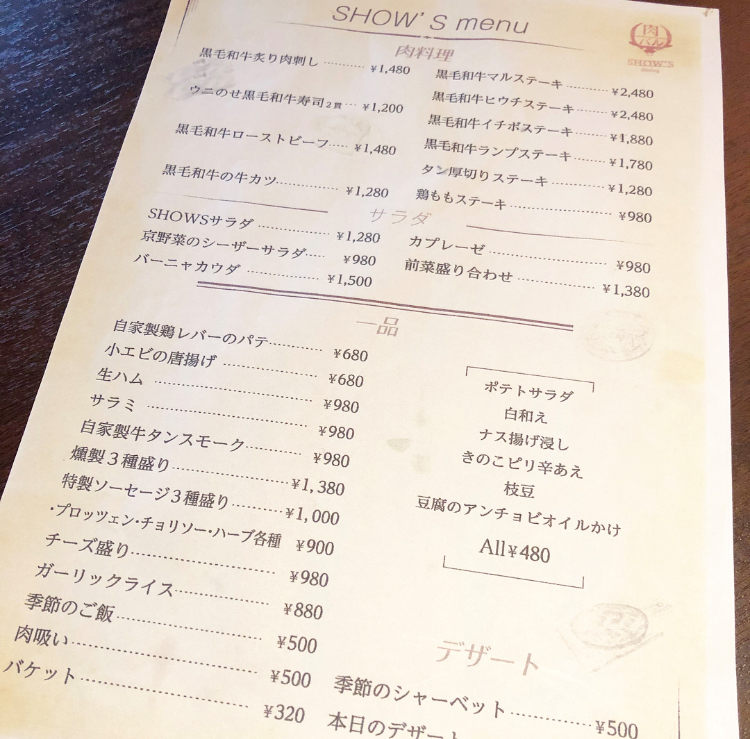 SHOW'S menu
肉
バル
SHOW'S
肉料理
黒毛和牛炙り肉刺し ¥1,480
ウニのせ黒毛和牛寿司2貫 ¥1,200
黒毛和牛ローストビーフ ¥1,480
黒毛和牛の牛カツ ¥1,280
黒毛和牛マルステーキ ¥2,480
黒毛和牛ヒウチステーキ ¥2,480
黒毛和牛イチボステーキ ¥1,880
黒毛和牛ランプステーキ ¥1,780
タン厚切りステーキ ¥1,280
鶏ももステーキ ¥980
サラダ
SHOWSサラダ ¥1,280
京野菜のシーザーサラダ ¥980
バーニャカウダ ¥1,500
カプレーゼ ¥980
前菜盛り合わせ ¥1,380
一品
自家製鶏レバーのパテ ¥680
小エビの唐揚げ ¥680
生ハム ¥980
サラミ ¥980
自家製牛タンスモーク ¥980
燻製3種盛り ¥1,380
特製ソーセージ3種盛り ¥1,000
・ブロッツェン・チョリソー・ハーブ各種 ¥900
チーズ盛り ¥980
ガーリックライス ¥880
季節のご飯 ¥500
肉吸い ¥500
バケット ¥320
ポテトサラダ
白和え
ナス揚げ浸し
きのこピリ辛あえ
枝豆
豆腐のアンチョビオイルかけ
All¥480
デザート
季節のシャーベット ¥500
本日のデザート